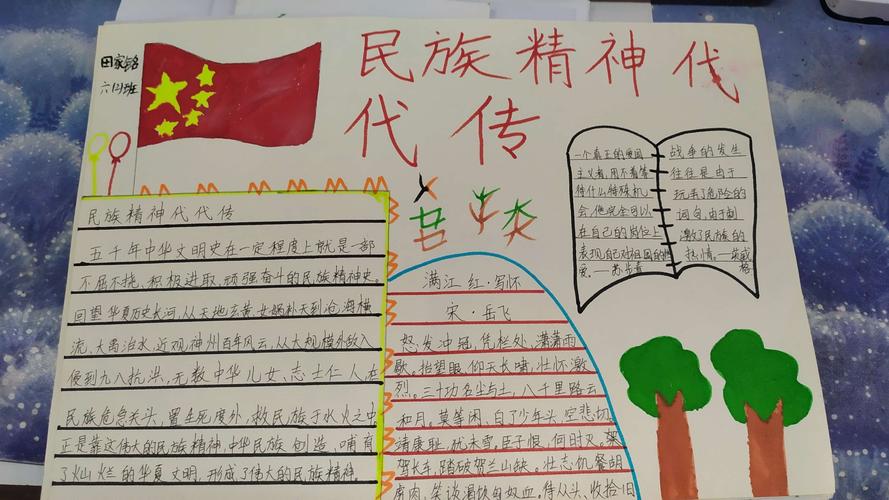 民族精神代
代传
田家铭
六(2)班
民族精神代代传
五千年中华文明史在一定程度上就是一部
不屈不挠、积极进取、顽强奋斗的民族精神史。
回望华夏历史长河,从天地玄黄、女娲补天到沧海横
流、大禹治水,近观神州百年风云,从大规模外敌入
侵到九八抗洪,无数中华儿女、志士仁人在
民族危急关头,置生死度外,救民族于水火之中
正是靠这伟大的民族精神,中华民族创造、哺育
了灿烂的华夏文明,形成了伟大的民族精神。
满江红·写怀
宋·岳飞
怒发冲冠,凭栏处、潇潇雨
歇。抬望眼,仰天长啸,壮怀激
烈。三十功名尘与土,八千里路云
和月。莫等闲、白了少年头,空悲切。
靖康耻,犹未雪。臣子恨,何时灭。驾
驾长车,踏破贺兰山缺。壮志饥餐胡
虏肉,笑谈渴饮匈奴血。待从头、收拾旧
一个真正的爱国
主义者,用不着等
待什么特殊机
会,他完全可以
在自己的岗位上
表现自己对祖国的热
爱。——苏步青
战争的发生
往往是由于
玩弄了危险的
词句,由于刺
激了民族的
热情。——英
格